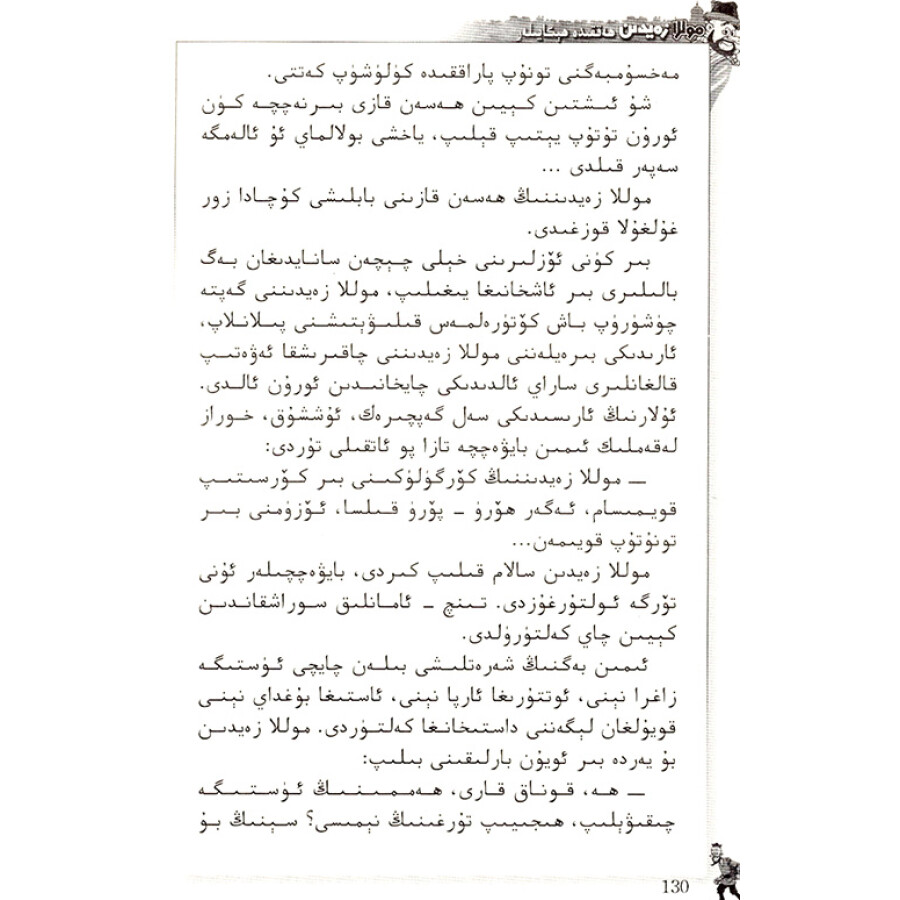 موللا زەيدىن ھەققىدە ھېكايىلەر
مەخسۇمبەگنى تونۇپ پاراققىدە كۈلۈشۈپ كەتتى.
شۇ ئىشتىن كېيىن ھەسەن قازى بىرنەچچە كۈن
ئورۇن تۇتۇپ يېتىپ قېلىپ، ياخشى بولالماي ئۇ ئالەمگە
سەپەر قىلدى ...
موللا زەيدىننىڭ ھەسەن قازىنى بابلىشى كۇچادا زور
غۇلغۇلا قوزغىدى.
بىر كۈنى ئۆزلىرىنى خېلى چېچەن سانايدىغان بەگ
بالىلىرى بىر ئاشخانىغا يىغىلىپ، موللا زەيدىننى گەپتە
چۈشۈرۈپ باش كۆتۈرەلمەس قىلىۋېتىشنى پىلانلاپ،
ئارىدىكى بىرەيلەننى موللا زەيدىننى چاقىرىشقا ئەۋەتىپ
قالغانلىرى ساراي ئالدىدىكى چايخانىدىن ئورۇن ئالدى.
ئۇلارنىڭ ئارىسىدىكى سەل گەپچىرەك، ئۇششۇق، خوراز
لەقەملىك ئىمىن بايۋەچچە تازا پو ئاتقىلى تۇردى:
— موللا زەيدىننىڭ كۆرگۈلۈكىنى بىر كۆرسىتىپ
قويمىسام، ئەگەر ھۆرۇ - پۆرۇ قىلسا، ئۆزۈمنى بىر
تونۇتۇپ قويىمەن...
موللا زەيدىن سالام قىلىپ كىردى، بايۋەچچىلەر ئۇنى
تۆرگە ئولتۇرغۇزدى. تىنچ - ئامانلىق سوراشقاندىن
كېيىن چاي كەلتۈرۈلدى.
ئىمىن بەگنىڭ شەرەتلىشى بىلەن چايچى ئۈستىگە
زاغرا نېنى، ئوتتۇرىغا ئارپا نېنى، ئاستىغا بۇغداي نېنى
قويۇلغان لېگەننى داستىخانغا كەلتۈردى. موللا زەيدىن
بۇ يەردە بىر ئويۇن بارلىقىنى بىلىپ:
— ھە، قوناق قارى، ھەممىنىڭ ئۈستىگە
چىقىۋېلىپ، ھىجىيىپ تۇرغىنىڭ نېمىسى؟ سېنىڭ بۇ
130